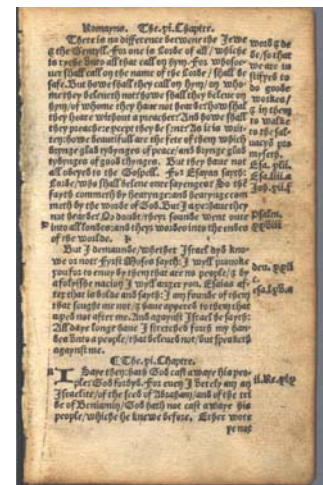 Romayns. The.xi.Chaptre.
There is no difference betwene the Jewe
& the Gentyll. For one is Lorde of all / whiche
is ryche vnto all that call on hym. For whosoe-
uer shall call on the name of the Lorde / shall be
safe. But howe shall they call on hym / on who-
me they beleueth not: howe shall they beleue on
hym / of whome they haue not hearde: how shal
they heare without a preacher: And howe shall
they preache: except they be sent: As it is writ-
ten: howe beautifull are the fete of them which
brynge glad tydynges of peace / and brynge glad
tydynges of good thynges. But they haue not
all obeyed to the Gospell. For Esayas sayth:
Lorde / who shall beleue oure sayenges: So the
fayth commeth by hearynge: and hearynge com
meth by the worde of God. But I axe: haue they
not hearde: No doubt / theyr sounde went oute
into all londes: and theyr wordes into the endes
of the worlde.
But I demaunde / whether Israel dyd kno-
we or not: Fyrst Moses sayth: I wyll prouoke
you for to enuy by them that are no people / & by
a folysshe nacion I wyll anger you. Esaias af-
ter that is bolde and sayth: I am founde of them
that sought me not / & haue appered to them that
axed not after me. And agaynst Israel he sayth:
All daye longe haue I stretched forth my han-
des vnto a people / that beleueth not / but speaketh
agaynst me.
The.xi.Chaptre.
I Saye then: hath God cast awaye his peo-
ple: God forbyd. For euen I verely am an
Israelite / of the seed of Abraham / and of the tri
be of Beniamin / God hath not cast awaye his
people / whiche he knewe before. Ether wote
ye not
worth & de
be / so that
we are in
styfyed to
do goode
workes /
& in them
to walke
to the sal-
myselfe.
Esa.liii.a
psalm.
xviii
deu. xxxii
c.
esa.lxv.a
iii.Re.xix